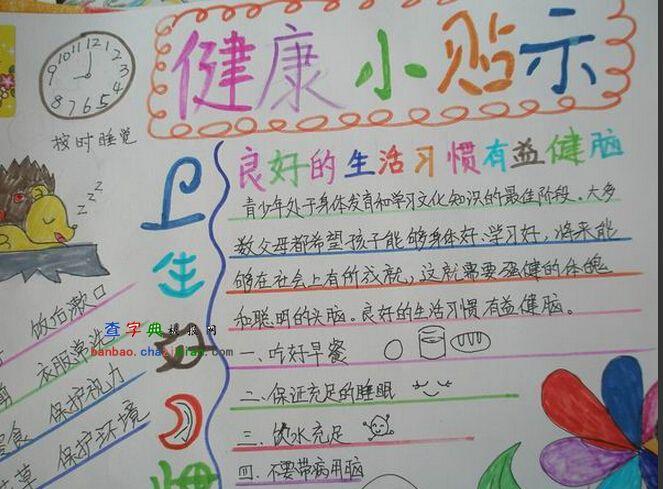 健康小贴示
12
1
2
3
4
5
6
7
8
9
10
11
按时睡觉
zzz
卫生
良好的生活习惯有益健脑
青少年处于身体发育和学习文化知识的最佳阶段。大多
数父母都希望孩子能够身体好、学习好,将来能
够在社会上有所成就,这就需要强健的体魄
和聪明的头脑。良好的生活习惯有益健脑。
一、吃好早餐
二、保证充足的睡眠
三、饮水充足
四、不要带病用脑
饭后漱口
衣服常洗
保护视力
保护环境
查字典模报网
banbao.chazidian.com